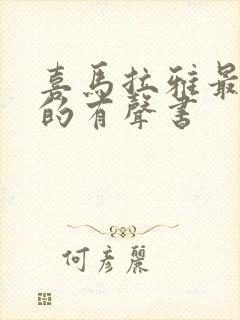 喜馬拉雅最
的有聲書
何彥麗